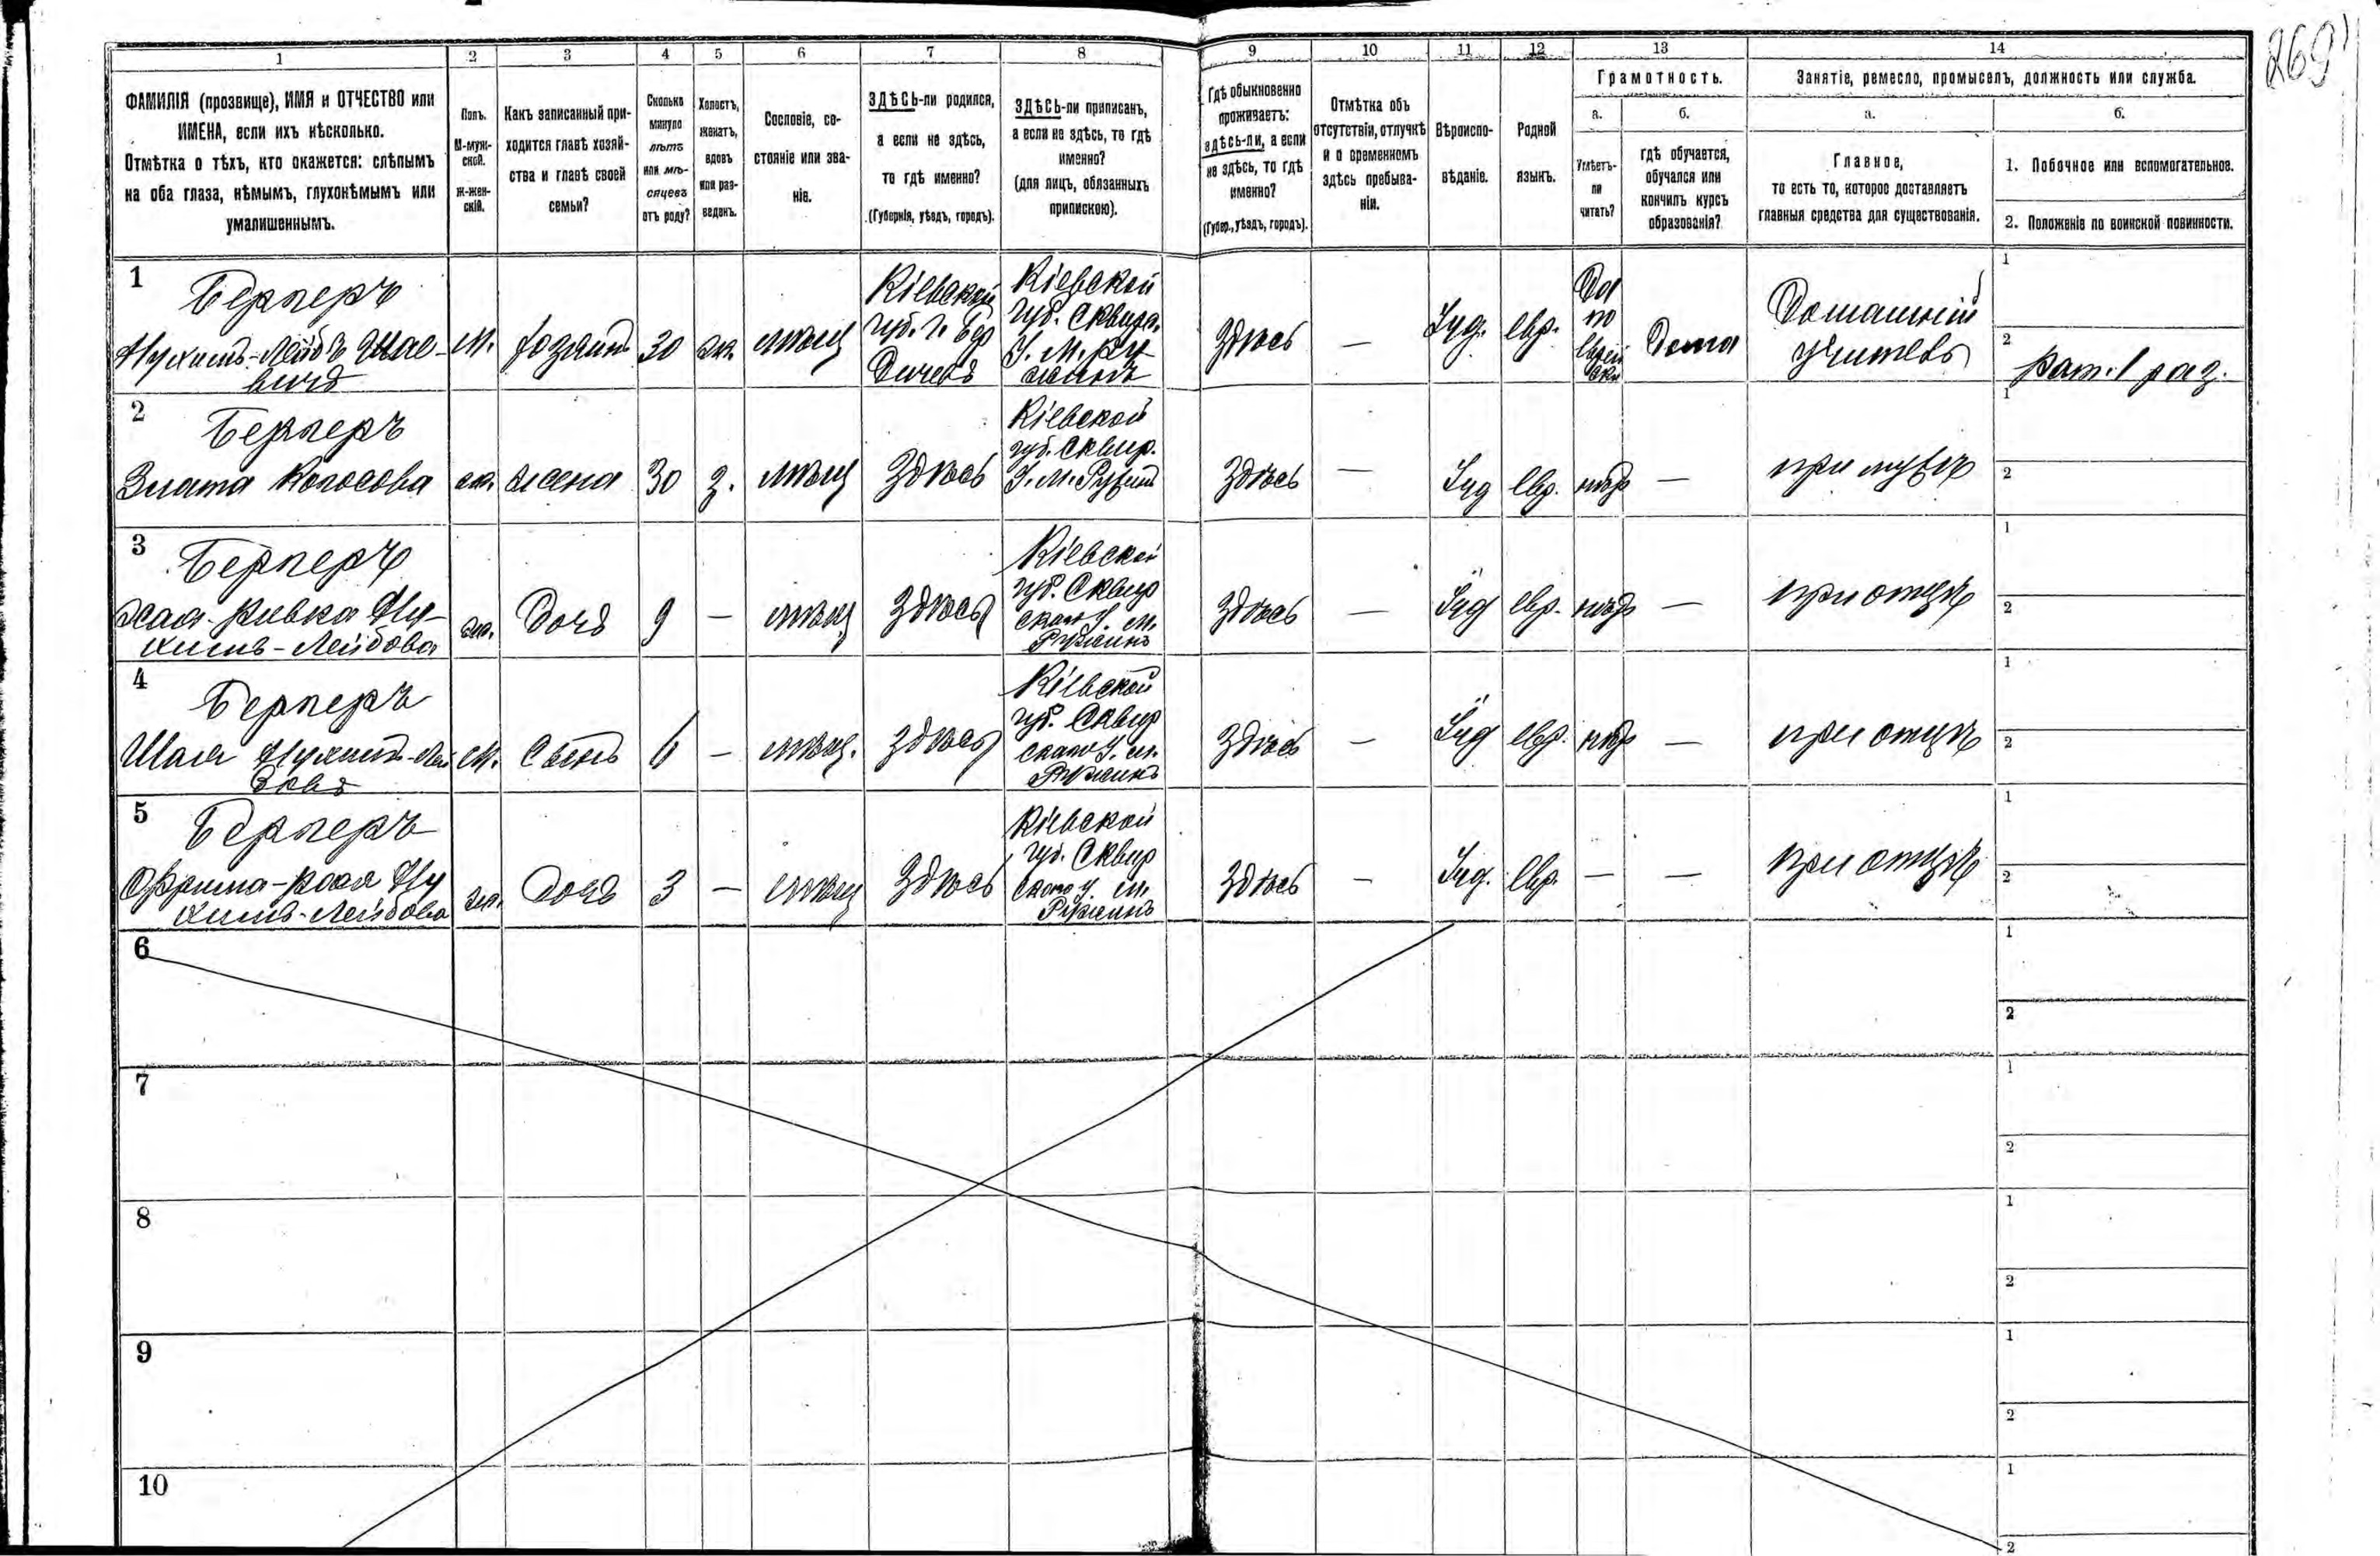 269
1 2 3 4 5 6 7 8 9 10 11 12 13 14
ФАМИЛІЯ (прозвище), ИМЯ и ОТЧЕСТВО или
ИМЕНА, если ихъ нѣсколько.
Отмѣтка о тѣхъ, кто окажется: слѣпымъ
на оба глаза, нѣмымъ, глухонѣмымъ или
умалишеннымъ.
Полъ.
М-муж-
ской.
ж-жен-
скій.
Какъ записанный при-
ходится главѣ хозяй-
ства и главѣ своей
семьи?
Сколько
минуло
лѣтъ
или мѣ-
сяцевъ
отъ роду?
Холостъ,
женатъ,
вдовъ
или раз-
веденъ.
Сословіе, со-
стояніе или зва-
ніе.
ЗДѢСЬ-ли родился,
а если не здѣсь,
то гдѣ именно?
(Губернія, уѣздъ, городъ).
ЗДѢСЬ-ли приписанъ,
а если не здѣсь, то гдѣ
именно?
(для лицъ, обязанныхъ
припискою).
Гдѣ обыкновенно
проживаетъ:
здѣсь-ли, а если
не здѣсь, то гдѣ
именно?
(Губер., уѣздъ, городъ).
Отмѣтка объ
отсутствіи, отлучкѣ
и о временномъ
здѣсь пребыва-
ніи.
Вѣроиспо-
вѣданіе.
Родной
языкъ.
Грамотность.
а.
Умѣетъ-
ли
читать?
б.
гдѣ обучается,
обучался или
кончилъ курсъ
образованія?
Занятіе, ремесло, промыселъ, должность или служба.
а.
Главное,
то есть то, которое доставляетъ
главныя средства для существованія.
б.
1. Побочное или вспомогательное.
2. Положеніе по воинской повинности.
1
Берперъ
Нухимъ-Лейбъ Шае-
вичъ
М.
хозяинъ
30
ж.
мѣщ
Кіевской
губ. г. Бер
дичевъ
Кіевской
губ. Сквира.
У. М. Ру
жинъ
Здѣсь
—
Іуд.
евр.
Да
по
еврей
ски
Дома
Домашній
учитель
1
2
рат. 1 раз.
2
Берперъ
Злата Колосова
ж.
жена
30
з.
мѣщ
Здѣсь
Кіевской
губ. Сквир.
У. М. Ружин
Здѣсь
—
Іуд
евр.
нѣтъ
—
при мужѣ
1
2
3
Берперъ
Хая-Ривка Ну-
химъ-Лейбова
ж.
Дочь
9
—
мѣщ
Здѣсь
Кіевской
губ. Сквир
скаго У. м.
Ружинъ
Здѣсь
—
Іуд
евр.
нѣтъ
—
при отцѣ
1
2
4
Берперъ
Шая Нухимъ-Лей
бовъ
М.
Сынъ
6
—
мѣщ.
Здѣсь
Кіевской
губ. Сквир
скаго У. м.
Ружинъ
Здѣсь
—
Іуд
евр.
нѣтъ
—
при отцѣ
1
2
5
Берперъ
Фрима-Рохля Ну
химъ-Лейбова
ж.
Дочь
3
—
мѣщ
Здѣсь
Кіевской
губ. Сквир
скаго У. м.
Ружинъ
Здѣсь
—
Іуд.
евр.
—
—
при отцѣ
1
2
6
1
2
7
1
2
8
1
2
9
1
2
10
1
2